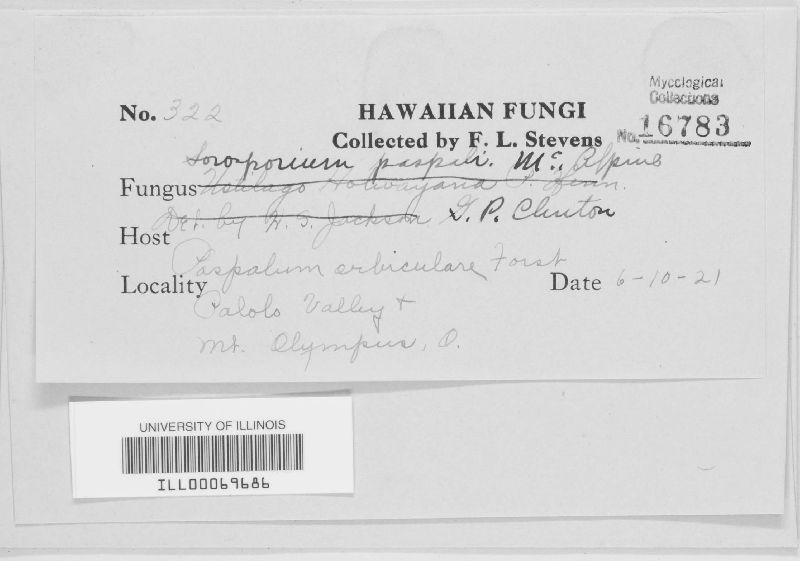 Mycological
Collections
No. 16783
No. 322
HAWAIIAN FUNGI
Collected by F. L. Stevens
Sorosporium paspali. Mc. Alpine
Fungus Ustilago P. Henn.
Det. by H. S. Jackson G. P. Clinton
Host
Paspalum orbiculare Forst
Locality Date 6-10-21
Palolo Valley +
Mt. Olympus, O.
UNIVERSITY OF ILLINOIS
ILL00069686